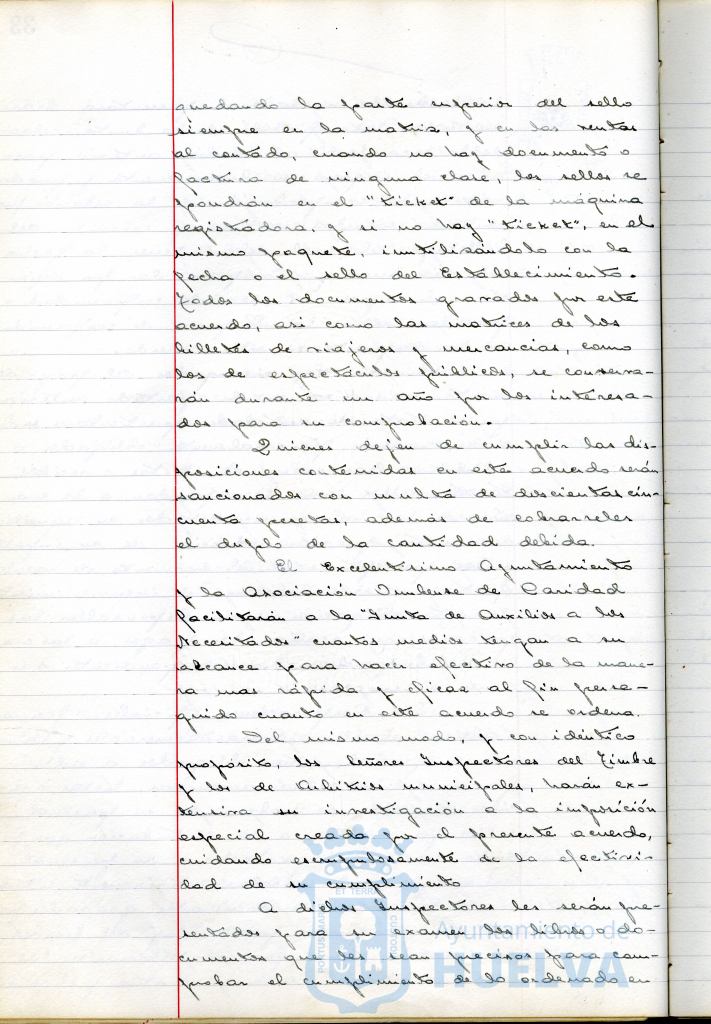 quedando la parte superior del sello
siempre en la matriz, y en las ventas
al contado, cuando no hay documento o
factura de ninguna clase, los sellos se
pondrán en el "ticket" de la máquina
registradora, y si no hay "ticket", en el
mismo paquete, inutilizándolo con la
fecha o el sello del Establecimiento.
Todos los documentos gravados por este
acuerdo, asi como las matrices de los
billetes de viajeros y mercancias, como
los de espectáculos públicos, se conserva-
rán durante un año por los interesa-
dos para su comprobación.
Quienes dejen de cumplir las dis-
posiciones contenidas en este acuerdo serán
sancionados con multa de doscientas cin-
cuenta pesetas, además de cobrarseles
el duplo de la cantidad debida.
El Excelentisimo Ayuntamiento
y la Asociación Onubense de Caridad
facilitarán a la "Junta de Auxilios a los
Necesitados" cuantos medios tengan a su
alcance para hacer efectivo de la mane-
ra mas rápida y eficaz al fin perse-
guido cuanto en este acuerdo se ordena.
Del mismo modo, y con idéntico
propósito, los Señores Inspectores del Timbre
y los de Arbitrios municipales, harán ex-
tensiva su investigación a la imposición
especial creada por el presente acuerdo,
cuidando escrupulosamente de la efectivi-
dad de su cumplimiento
A dichos Inspectores les serán pre-
sentados para su examen los libros o do-
cumentos que les sean precisos para com-
probar el cumplimiento de lo ordenado en
Ayuntamiento de
HUELVA
PORTUS MARIS
ET TERRAE
CUSTODIA